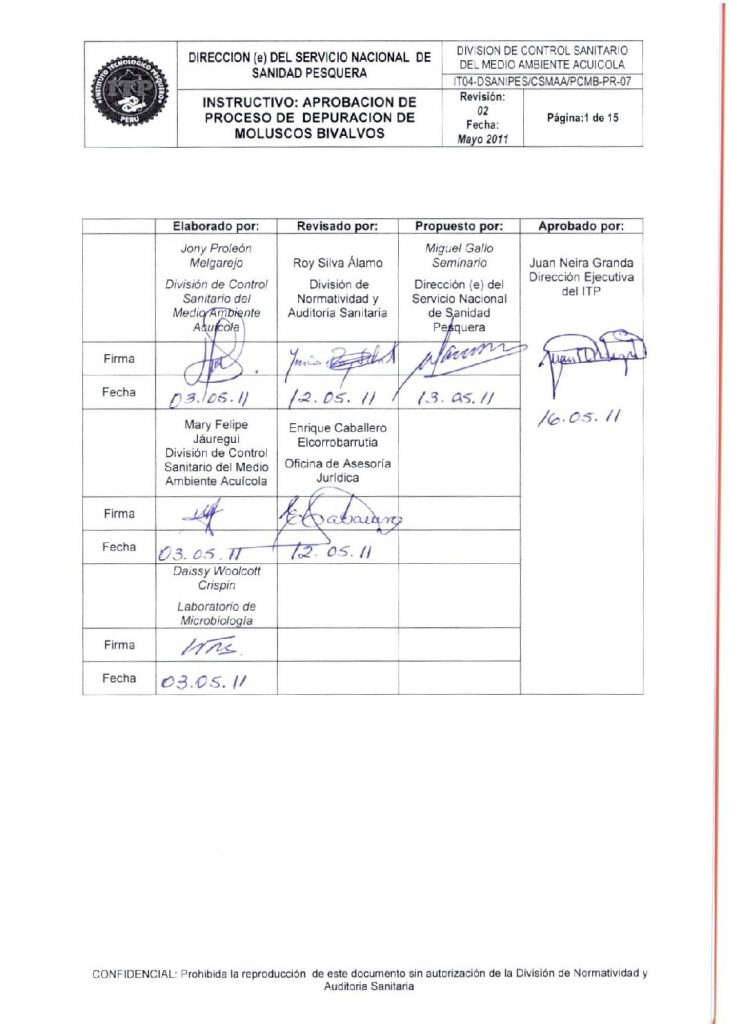 INSTITUTO TECNOLOGICO PESQUERO
ITP
PERU
DIRECCION (e) DEL SERVICIO NACIONAL DE
SANIDAD PESQUERA
DIVISION DE CONTROL SANITARIO
DEL MEDIO AMBIENTE ACUICOLA
IT04-DSANIPES/CSMAA/PCMB-PR-07
INSTRUCTIVO: APROBACION DE
PROCESO DE DEPURACION DE
MOLUSCOS BIVALVOS
Revisión:
02
Fecha:
Mayo 2011
Página:1 de 15
Elaborado por:
Revisado por:
Propuesto por:
Aprobado por:
Jony Proleón
Melgarejo
División de Control
Sanitario del
Medio Ambiente
Acuícola
Roy Silva Álamo
División de
Normatividad y
Auditoria Sanitaria
Miguel Gallo
Seminario
Dirección (e) del
Servicio Nacional
de Sanidad
Pesquera
Juan Neira Granda
Dirección Ejecutiva
del ITP
Firma
Fecha
03.05.11
12.05.11
13.05.11
16.05.11
Mary Felipe
Jáuregui
División de Control
Sanitario del Medio
Ambiente Acuícola
Enrique Caballero
Elcorrobarrutia
Oficina de Asesoría
Jurídica
Firma
Fecha
03.05.11
12.05.11
Daissy Woolcott
Crispin
Laboratorio de
Microbiología
Firma
Fecha
03.05.11
CONFIDENCIAL: Prohibida la reproducción de este documento sin autorización de la División de Normatividad y
Auditoria Sanitaria